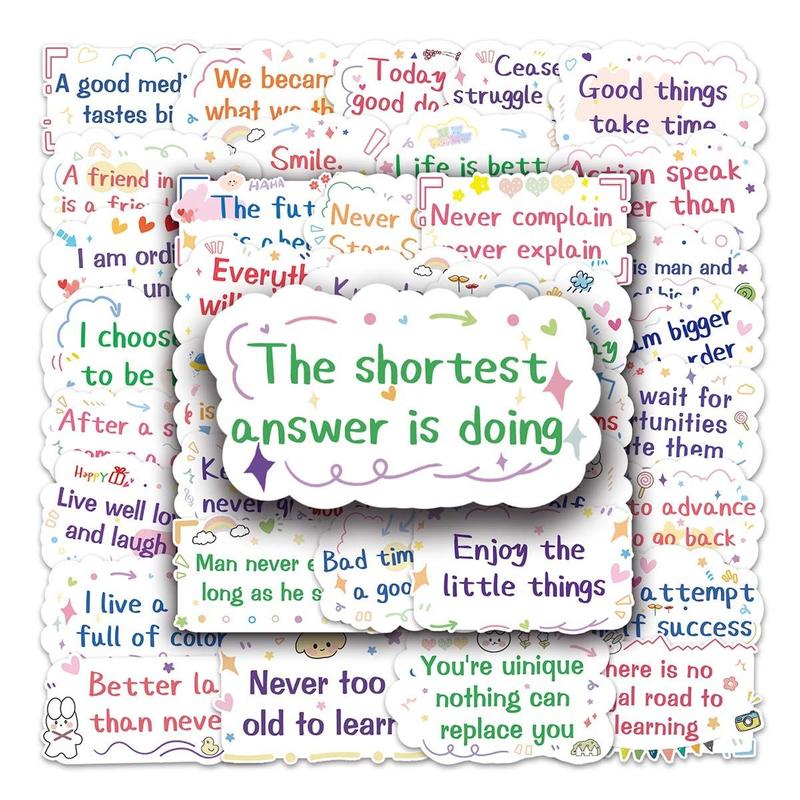 A good med
tastes bi
We becam
what we th
Today
good do
Cease
struggle
Good things
take time
A friend in
is a frie
Smile.
Life is bett
Action speak
er than
HAHA
The fut
is a be
Never
Stop S
Never complain
never explain
I am ordi
d un
Everyth
will
is man and
of his f
I choos
to be
The shortest
answer is doing
am bigger
rder
After a s
wait for
tunities
te them
HAPPY
Live well lo
and laugh
Ke
never g
to advance
to go back
Man never
long as he s
Bad tim
a goo
Enjoy the
little things
I live a
full of color
attempt
f success
Better la
than neve
Never too
old to learn
You're uinique
nothing can
replace you
here is no
al road to
learning